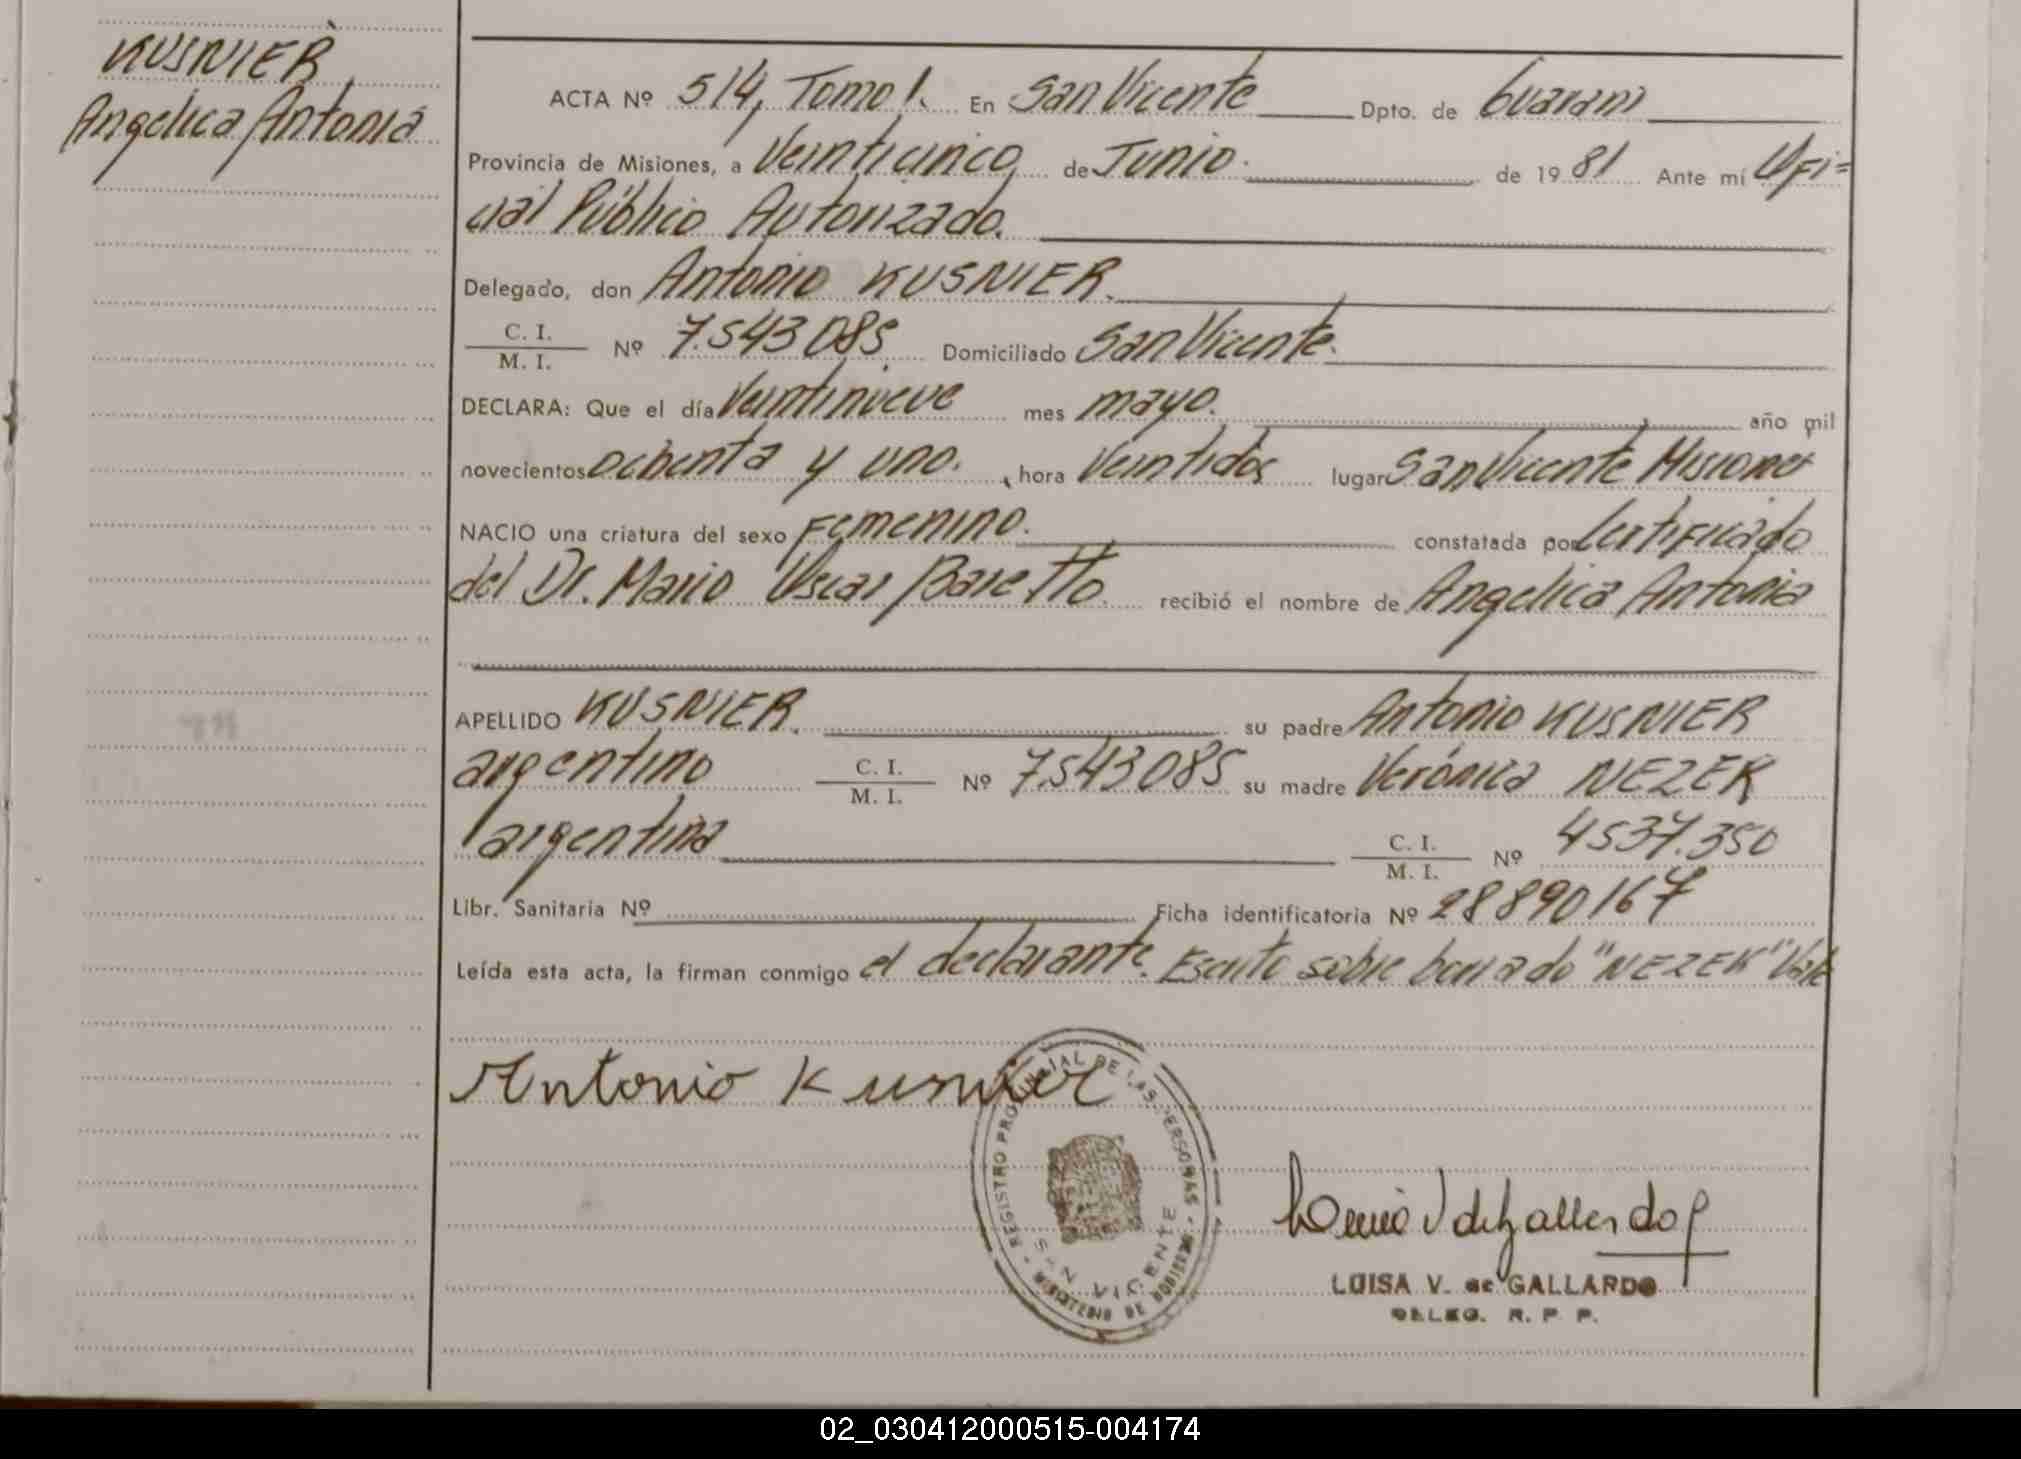 KUSNIER
Angélica Antonia
ACTA Nº 514, Tomo I. En San Vicente Dpto. de Guaraní
Provincia de Misiones, a Veinticinco de Junio. de 1981 Ante mí Ofi=
cial Público Autorizado.
Delegado, don Antonio KUSNIER.
C. I.
M. I. Nº 7.543.085 Domiciliado San Vicente.
DECLARA: Que el día Veintinueve mes mayo. año mil
novecientos ochenta y uno. , hora Veintidos lugar San Vicente Misiones
NACIO una criatura del sexo Femenino. constatada por Certificado
del Dr. Mario Oscar Baretto. recibió el nombre de Angélica Antonia
APELLIDO KUSNIER. su padre Antonio KUSNIER
argentino C. I.
M. I. Nº 7.543.085 su madre Verónica NEZEK
argentina C. I.
M. I. Nº 4537.350
Libr. Sanitaria Nº Ficha identificatoria Nº 28890167
Leída esta acta, la firman conmigo el declarante. Escrito sobre borrado "NEZEK" Vale
Antonio Kusnier
REGISTRO PROVINCIAL DE LAS PERSONAS - MINISTERIO DE GOBIERNO -
SAN VICENTE
Luisa V de Gallardo
LUISA V. de GALLARDO
DELEG. R. P. P.
02_030412000515-004174